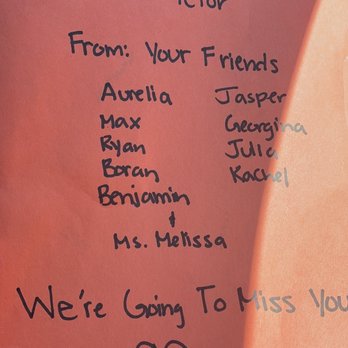 From: Your Friends
Aurelia Jasper
Max Georgina
Ryan Julia
Boran Rachel
Benjamin
&
Ms. Melissa
We're Going To Miss You